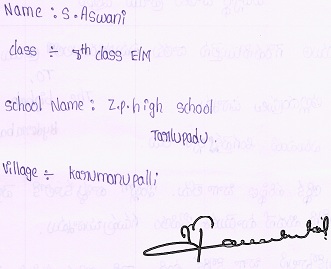 Name : S. Aswani
class ÷ 8th class E/M
School Name : Z.p. high school
Tanlupadu.
Village ÷ kanumanupalli